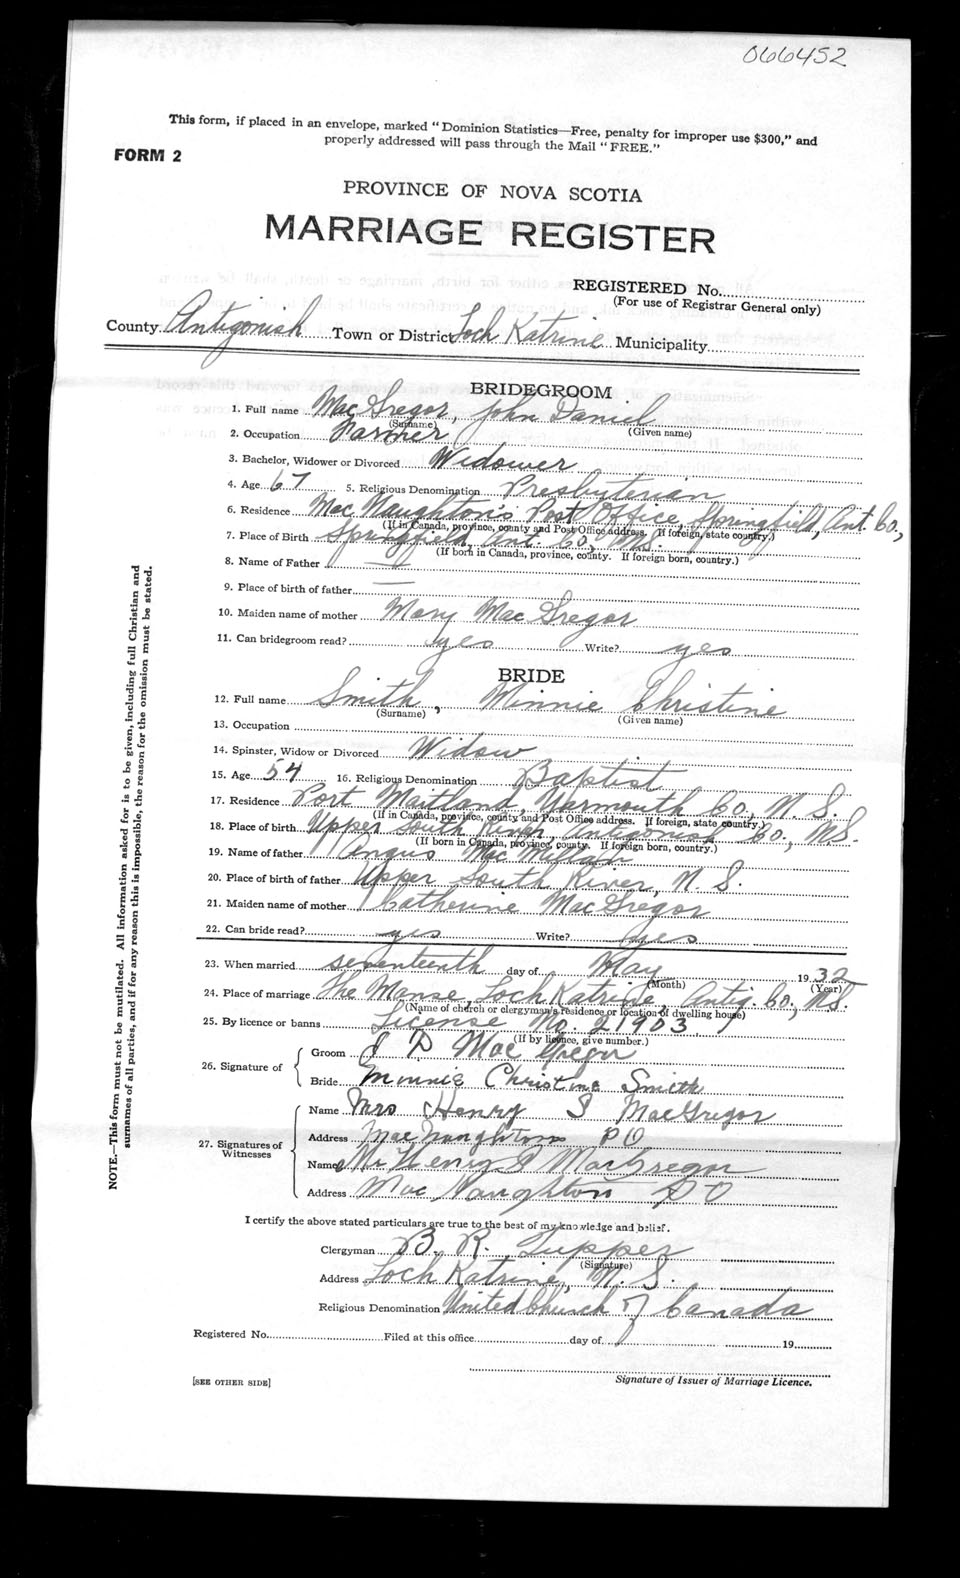 066452
This form, if placed in an envelope, marked "Dominion Statistics—Free, penalty for improper use $300," and
properly addressed will pass through the Mail "FREE."
FORM 2
PROVINCE OF NOVA SCOTIA
MARRIAGE REGISTER
REGISTERED No.
(For use of Registrar General only)
County Antigonish Town or District Loch Katrine Municipality
BRIDEGROOM
1. Full name MacGregor, John Daniel
(Surname) (Given name)
2. Occupation Farmer
3. Bachelor, Widower or Divorced Widower
4. Age 67 5. Religious Denomination Presbyterian
6. Residence MacNaughton's Post Office, Springfield, Ant. Co.,
(If in Canada, province, county and Post Office address. If foreign, state country.)
7. Place of Birth Springfield, Ant. Co., N.S.
(If born in Canada, province, county. If foreign born, country.)
8. Name of Father —
9. Place of birth of father —
10. Maiden name of mother Mary MacGregor
11. Can bridegroom read? yes Write? yes
BRIDE
12. Full name Smith, Minnie Christine
(Surname) (Given name)
13. Occupation
14. Spinster, Widow or Divorced Widow
15. Age 54 16. Religious Denomination Baptist
17. Residence Port Maitland, Yarmouth Co., N.S.
(If in Canada, province, county and Post Office address. If foreign, state country.)
18. Place of birth Upper South River, Antigonish Co., N.S.
(If born in Canada, province, county. If foreign born, country.)
19. Name of father Angus MacMillan
20. Place of birth of father Upper South River, N.S.
21. Maiden name of mother Catherine MacGregor
22. Can bride read? yes Write? yes
23. When married seventeenth day of May 1932
(Month) (Year)
24. Place of marriage The Manse, Loch Katrine, Antig. Co., N.S.
(Name of church or clergyman's residence or location of dwelling house)
25. By licence or banns License No. 21903
(If by licence, give number.)
26. Signature of
Groom J D MacGregor
Bride Minnie Christine Smith
27. Signatures of Witnesses
Name Mrs Henry S MacGregor
Address MacNaughtons PO
Name Mr Henry S MacGregor
Address MacNaughton P O
I certify the above stated particulars are true to the best of my knowledge and belief.
Clergyman B. R. Tupper
(Signature)
Address Loch Katrine, N.S.
Religious Denomination United Church of Canada
Registered No. Filed at this office day of 19
Signature of Issuer of Marriage Licence.
[SEE OTHER SIDE]
NOTE.—This form must not be mutilated. All information asked for is to be given, including full Christian and
surnames of all parties, and if for any reason this is impossible, the reason for the omission must be stated.